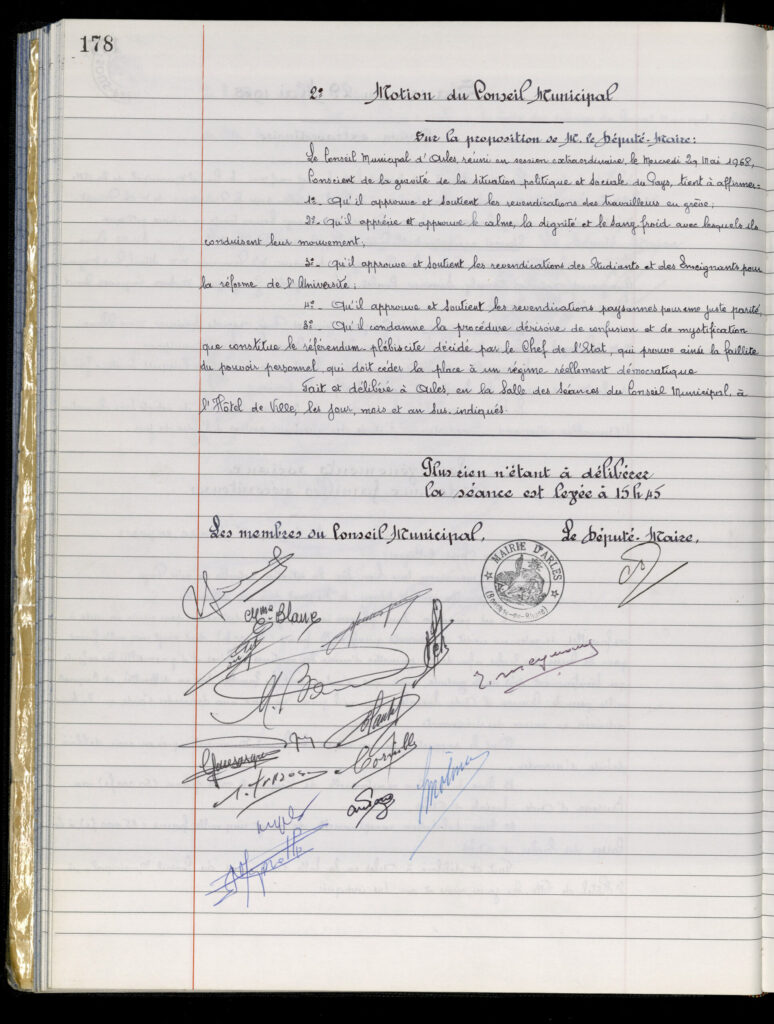 178
2º Motion du Conseil Municipal
Sur la proposition de M. le Député-Maire:
Le Conseil Municipal d'Arles, réuni en session extraordinaire, le Mercredi 29 Mai 1968,
Conscient de la gravité de la situation politique et sociale du Pays, tient à affirmer:
1º- Qu'il approuve et soutient les revendications des travailleurs en grève;
2º- Qu'il apprécie et approuve le calme, la dignité et le sang froid avec lesquels ils
conduisent leur mouvement;
3º- Qu'il approuve et soutient les revendications des Etudiants et des Enseignants pour
la réforme de l'Université;
4º- Qu'il approuve et soutient les revendications paysannes pour une juste parité,
5º- Qu'il condamne la procédure dérisoire de confusion et de mystification
que constitue le référendum plébiscite décidé par le Chef de l'Etat, qui prouve ainsi la faillite
du pouvoir personnel, qui doit céder la place à un régime réellement démocratique
Fait et délibéré à Arles, en la Salle des Séances du Conseil Municipal, à
l'Hôtel de Ville, les jour, mois et an sus. indiqués.
Plus rien n'étant à délibérer
la séance est levée à 15h45
Les membres du Conseil Municipal,
Le Député-Maire,
MAIRIE D'ARLES
(Bouches-du-Rhône)
Blanc